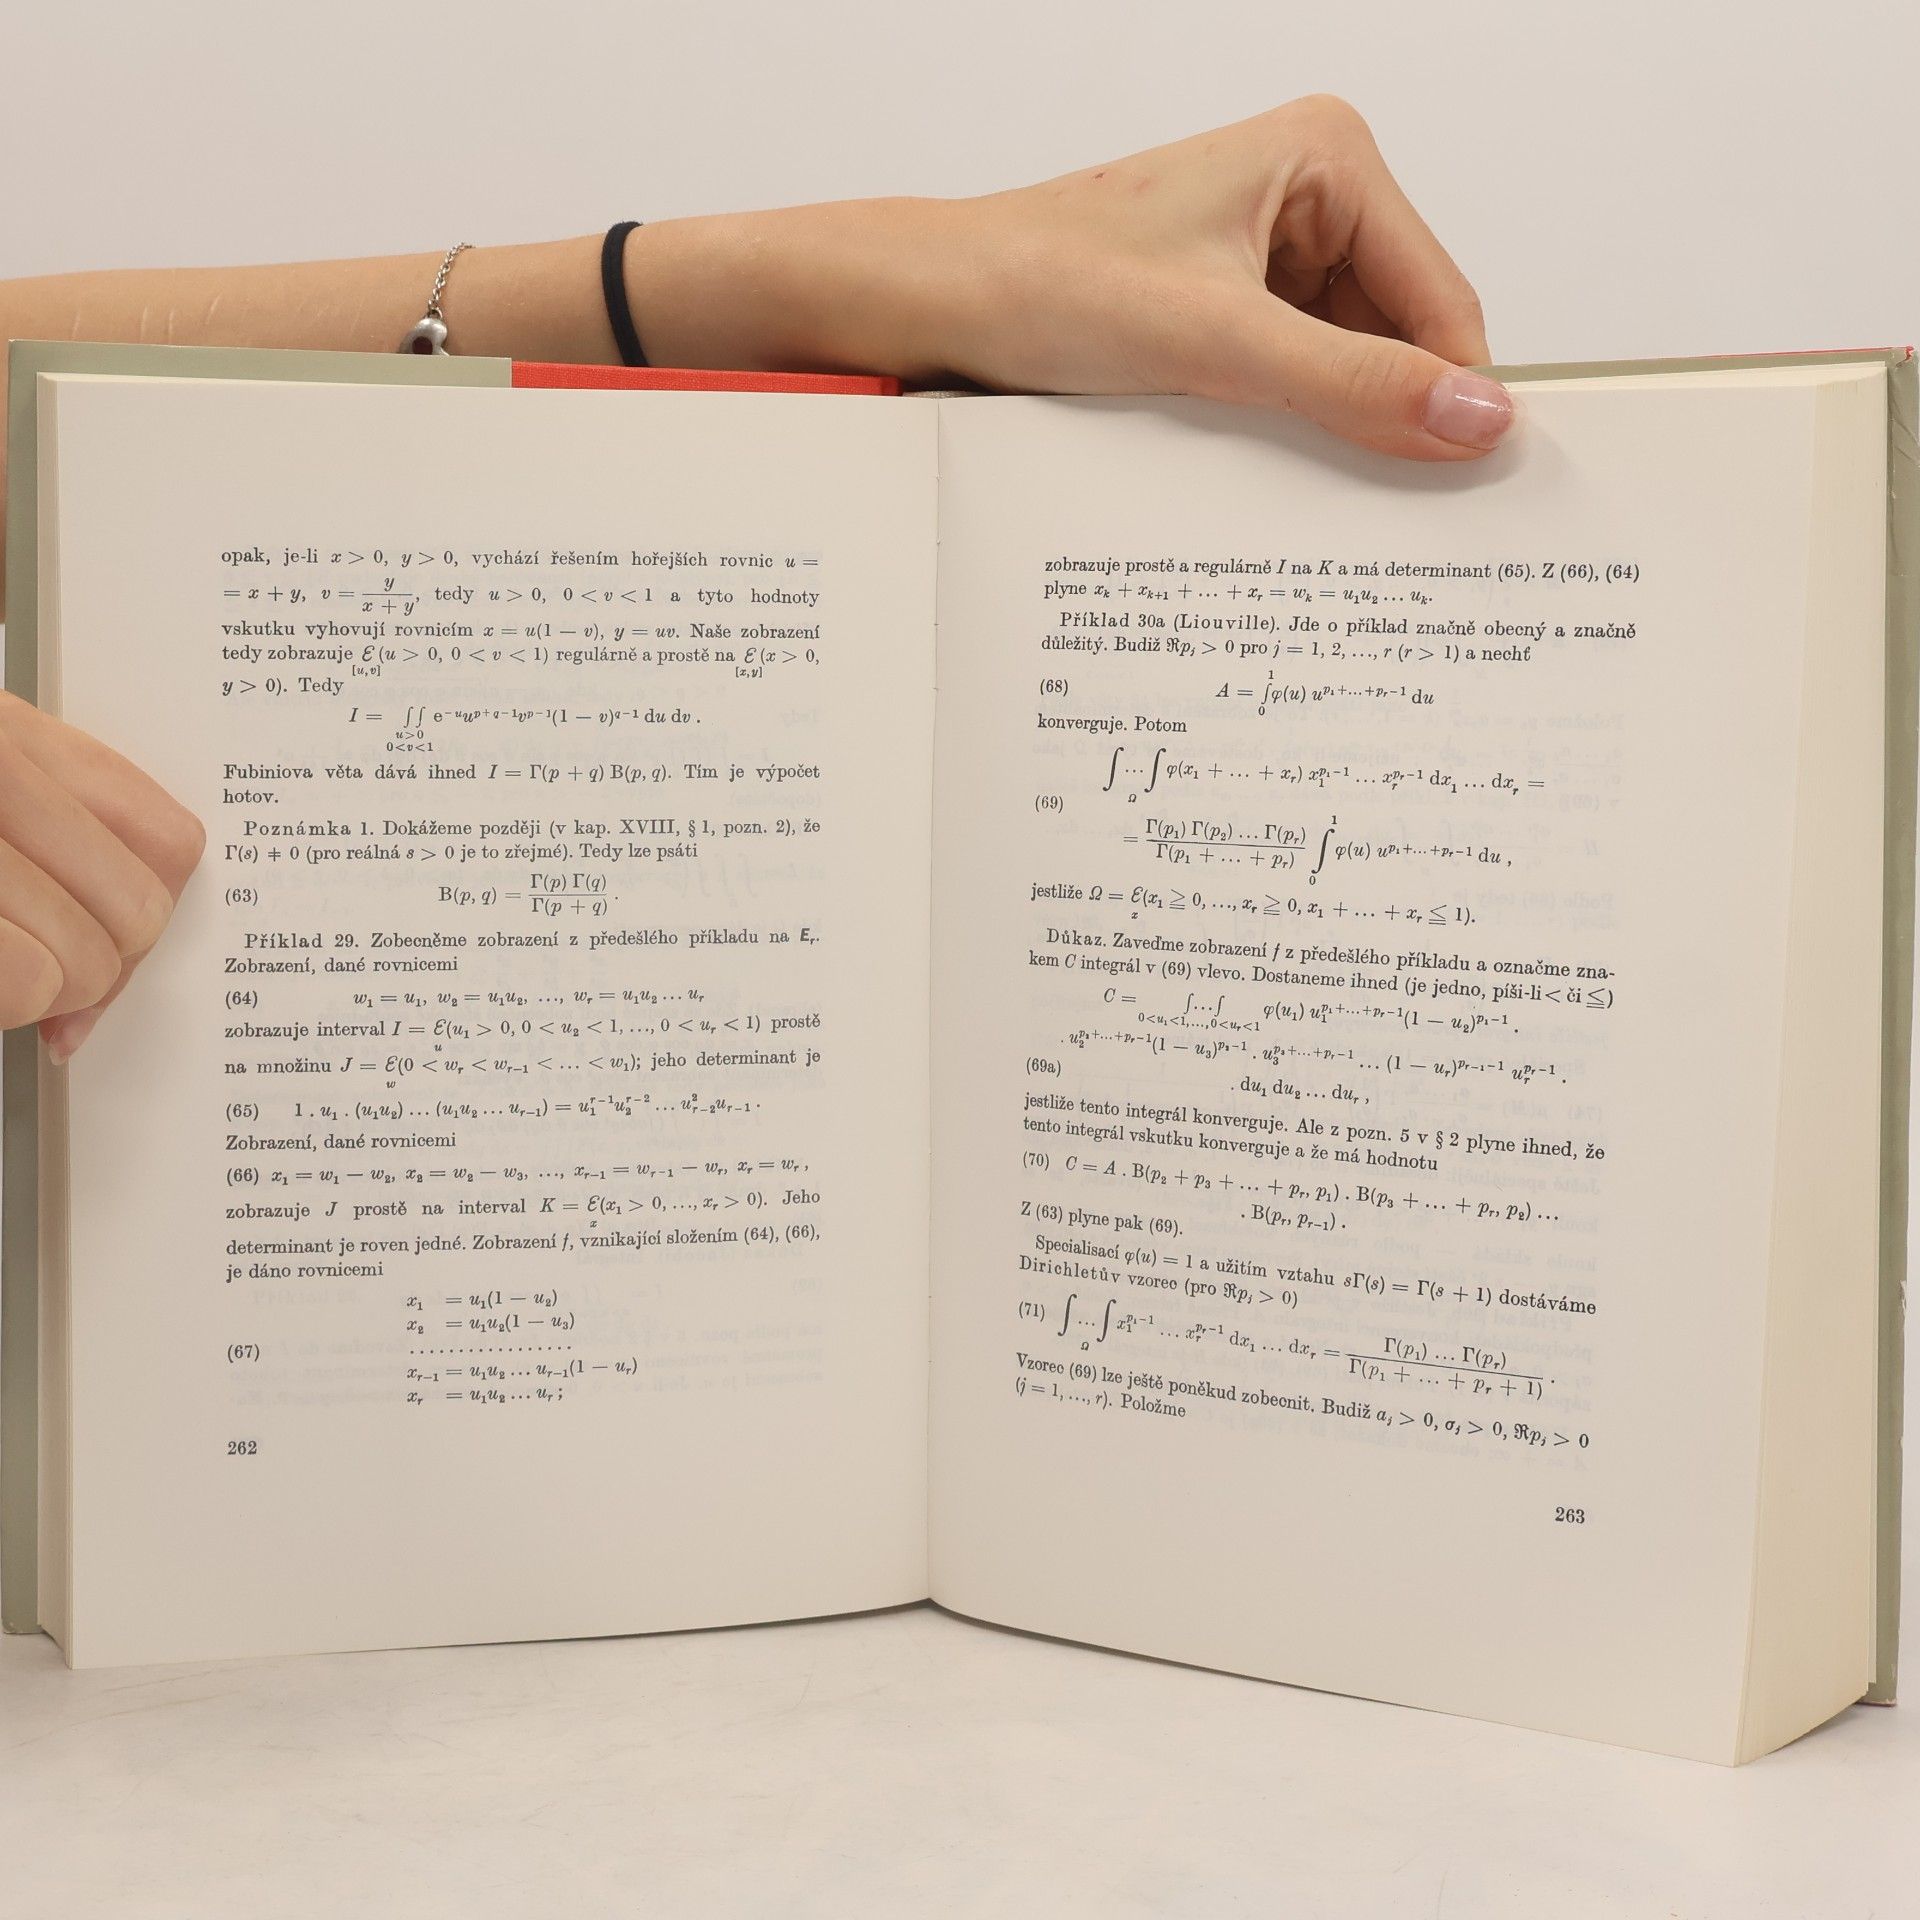 opak, je-li x > 0, y > 0, vychází řešením hořejších rovnic u =
= x + y, v = y/(x + y), tedy u > 0, 0 < v < 1 a tyto hodnoty
vskutku vyhovují rovnicím x = u(1 − v), y = uv. Naše zobrazení
tedy zobrazuje ℰ (u > 0, 0 < v < 1) regulárně a prostě na ℰ (x > 0,
[u,v] [x,y]
y > 0). Tedy
I = ∫∫ e^{−u}u^{p+q−1}v^{p−1}(1 − v)^{q−1} du dv .
u>0
0<v<1
Fubiniova věta dává ihned I = Γ(p + q) B(p, q). Tím je výpočet
hotov.
Poznámka 1. Dokážeme později (v kap. XVIII, § 1, pozn. 2), že
Γ(s) ≠ 0 (pro reálná s > 0 je to zřejmé). Tedy lze psáti
(63) B(p, q) = Γ(p) Γ(q)/Γ(p + q) .
Příklad 29. Zobecněme zobrazení z předešlého příkladu na E_r.
Zobrazení, dané rovnicemi
(64) w₁ = u₁, w₂ = u₁u₂, …, w_r = u₁u₂ … u_r
zobrazuje interval I = ℰ(u₁ > 0, 0 < u₂ < 1, …, 0 < u_r < 1) prostě
u
na množinu J = ℰ(0 < w_r < w_{r−1} < … < w₁); jeho determinant je
w
(65) 1 . u₁ . (u₁u₂) … (u₁u₂ … u_{r−1}) = u₁^{r−1}u₂^{r−2} … u_{r−2}^2u_{r−1} .
Zobrazení, dané rovnicemi
(66) x₁ = w₁ − w₂, x₂ = w₂ − w₃, …, x_{r−1} = w_{r−1} − w_r, x_r = w_r ,
zobrazuje J prostě na interval K = ℰ(x₁ > 0, …, x_r > 0). Jeho
x
determinant je roven jedné. Zobrazení f, vznikající složením (64), (66),
je dáno rovnicemi
x₁ = u₁(1 − u₂)
x₂ = u₁u₂(1 − u₃)
(67) . . . . . . . . . . . . . . . .
x_{r−1} = u₁u₂ … u_{r−1}(1 − u_r)
x_r = u₁u₂ … u_r ;
262
zobrazuje prostě a regulárně I na K a má determinant (65). Z (66), (64)
plyne x_k + x_{k+1} + … + x_r = w_k = u₁u₂ … u_k.
Příklad 30a (Liouville). Jde o příklad značně obecný a značně
důležitý. Budiž ℜp_j > 0 pro j = 1, 2, …, r (r > 1) a nechť
(68) A = ∫_0^1 φ(u) u^{p₁+…+p_r−1} du
konverguje. Potom
∫…∫_Ω φ(x₁ + … + x_r) x₁^{p₁−1} … x_r^{p_r−1} dx₁ … dx_r =
(69)
= Γ(p₁) Γ(p₂) … Γ(p_r)/Γ(p₁ + … + p_r) ∫_0^1 φ(u) u^{p₁+…+p_r−1} du ,
jestliže Ω = ℰ(x₁ ≧ 0, …, x_r ≧ 0, x₁ + … + x_r ≦ 1).
x
Důkaz. Zaveďme zobrazení f z předešlého příkladu a označme zna-
kem C integrál v (69) vlevo. Dostaneme ihned (je jedno, píši-li < či ≦)
C = ∫…∫ φ(u₁) u₁^{p₁+…+p_r−1}(1 − u₂)^{p₁−1} .
0<u₁<1,…,0<u_r<1
. u₂^{p₂+…+p_r−1}(1 − u₃)^{p₂−1} . u₃^{p₃+…+p_r−1} … (1 − u_r)^{p_{r−1}−1} u_r^{p_r−1} .
(69a) . du₁ du₂ … du_r ,
jestliže tento integrál konverguje. Ale z pozn. 5 v § 2 plyne ihned, že
tento integrál vskutku konverguje a že má hodnotu
(70) C = A . B(p₂ + p₃ + … + p_r, p₁) . B(p₃ + … + p_r, p₂) …
. B(p_r, p_{r−1}) .
Z (63) plyne pak (69).
Specialisací φ(u) = 1 a užitím vztahu sΓ(s) = Γ(s + 1) dostáváme
Dirichletův vzorec (pro ℜp_j > 0)
(71) ∫…∫_Ω x₁^{p₁−1} … x_r^{p_r−1} dx₁ … dx_r = Γ(p₁) … Γ(p_r)/Γ(p₁ + … + p_r + 1) .
Vzorec (69) lze ještě poněkud zobecnit. Budiž a_j > 0, σ_j > 0, ℜp_j > 0
(j = 1, …, r). Položme
263